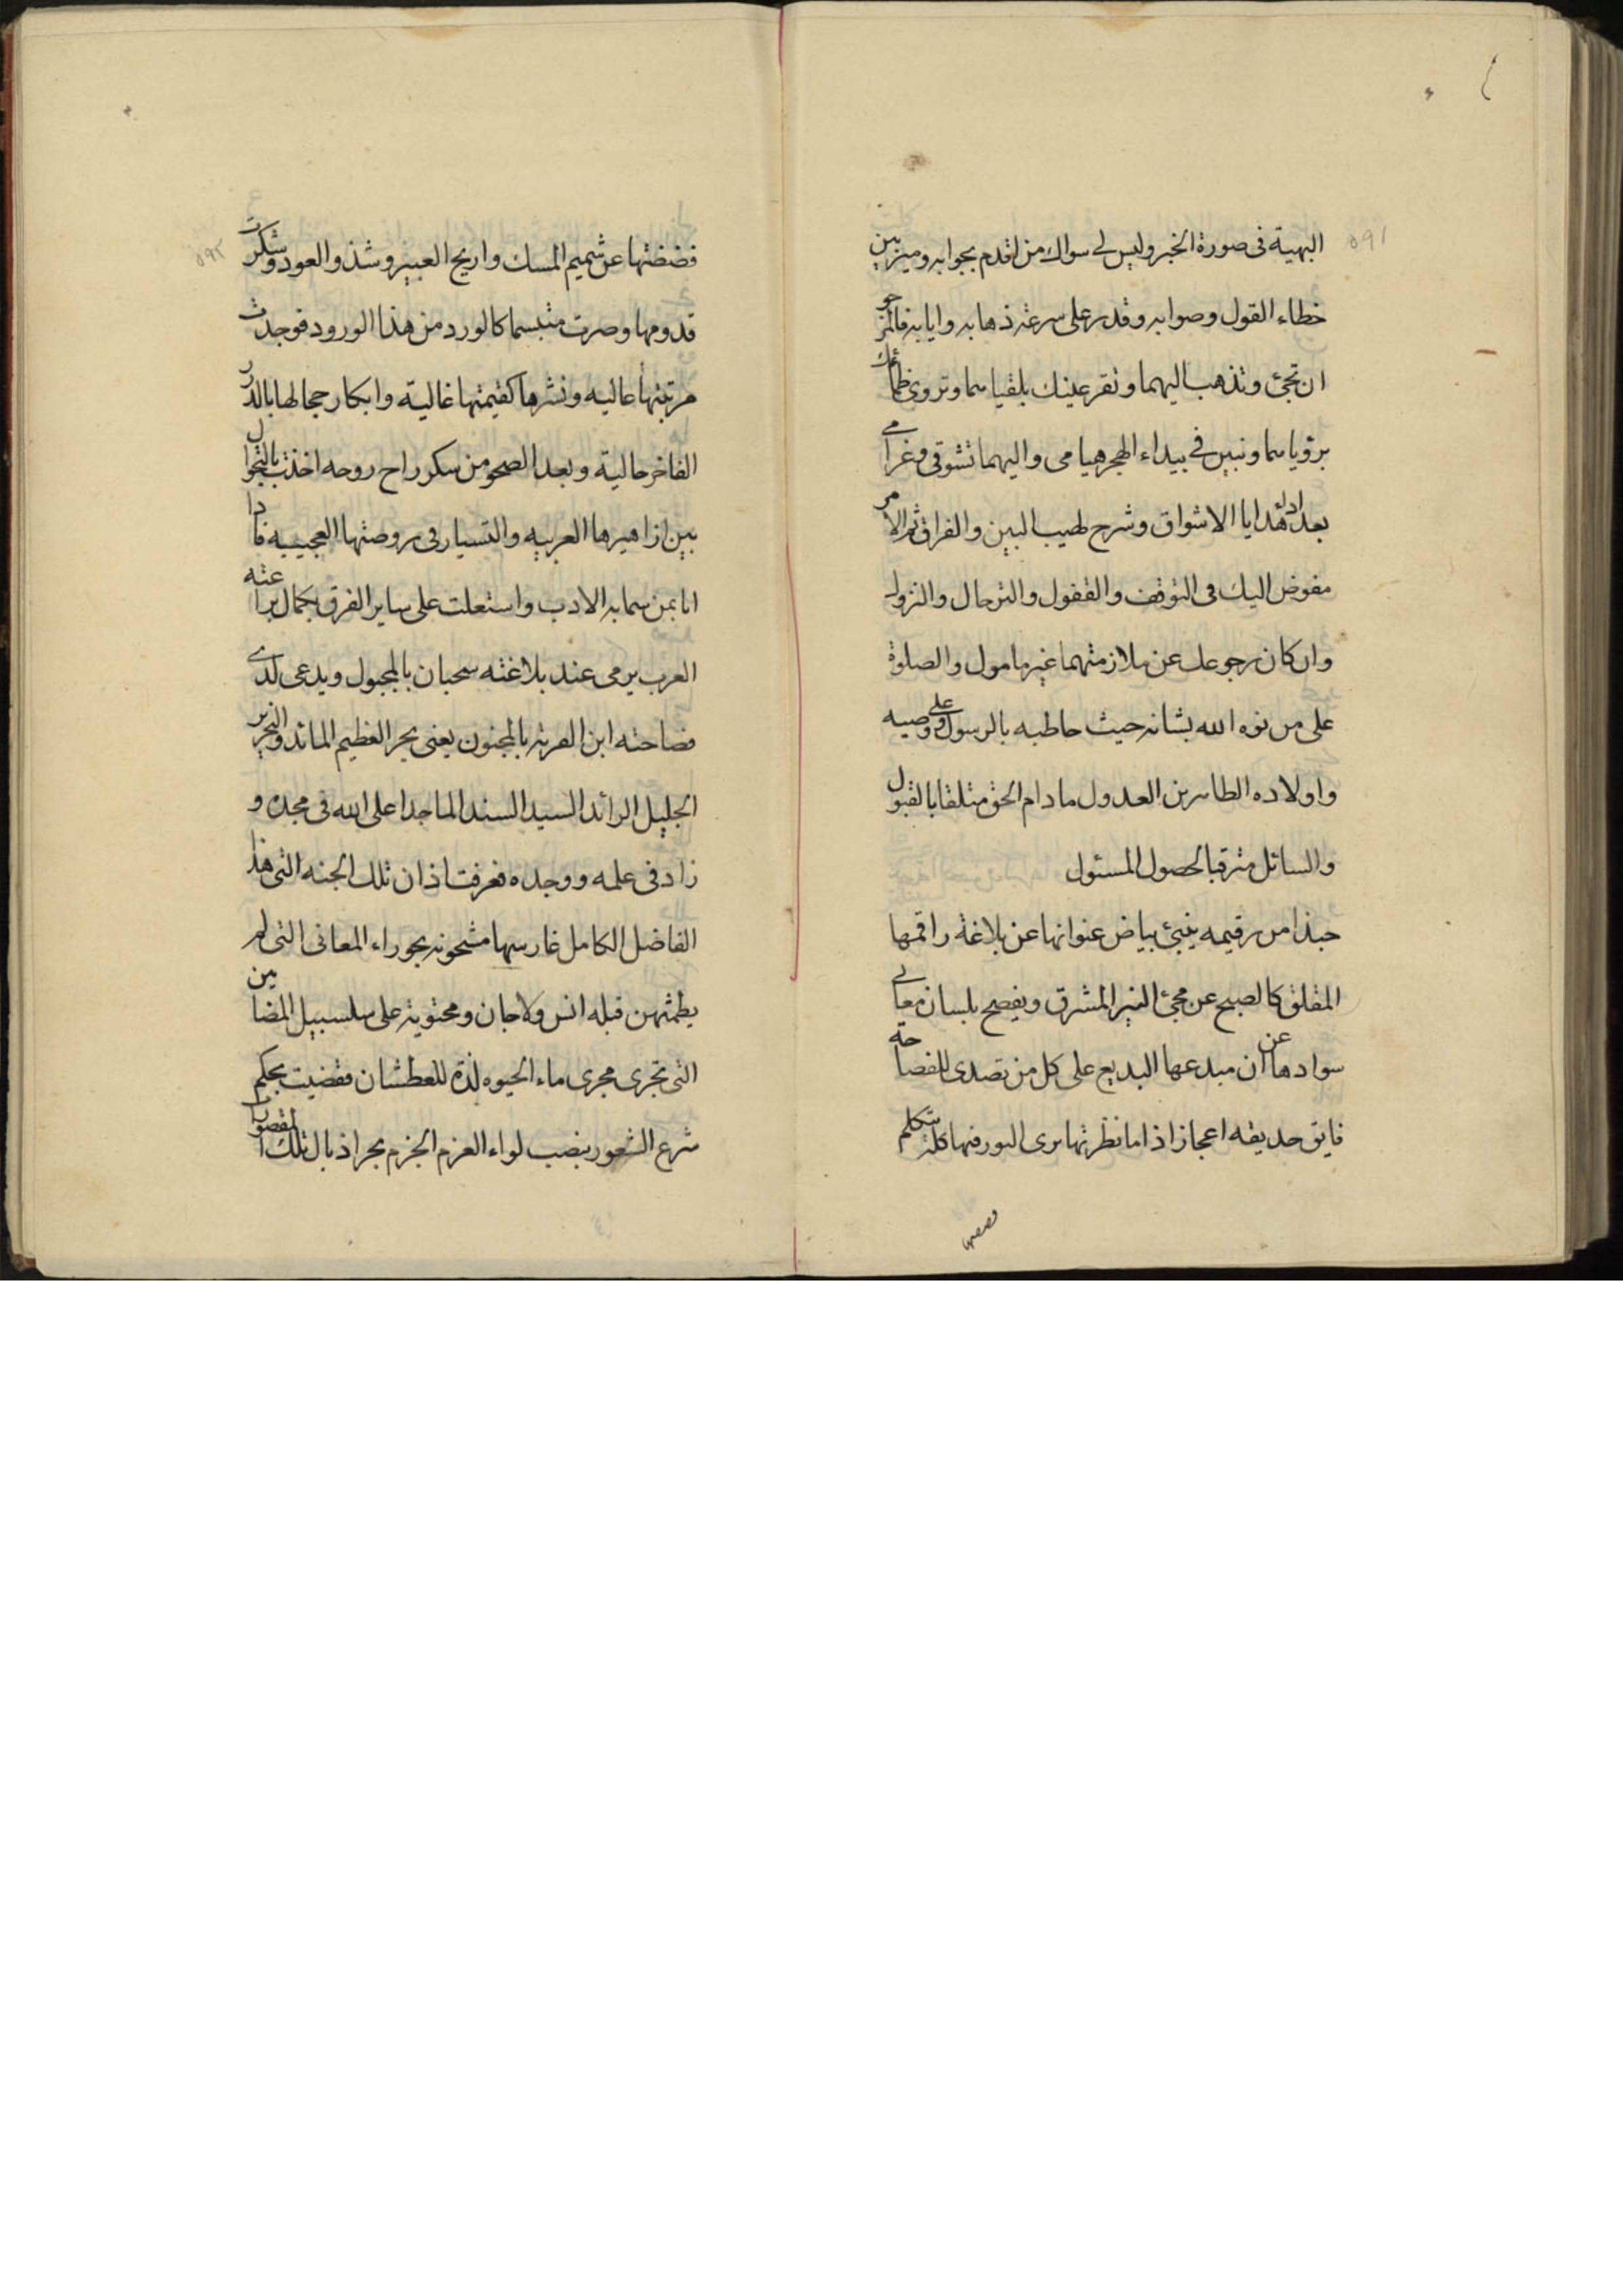 ٥٩١
البهية فى صورة الخبر وليس لى سواك من اقدم بجوابه وميز بين
خطاء القول وصوابه وقدر على سرعة ذهابه وايابه فالمرجو
ان تجئ وتذهب اليهما وتقر عينك بلقياهما وتروى ظمائك
برؤياهما ونبين فى بيداء الهجر هيامى واليهما تشوقى وغرامى
بعد اداء هدايا الاشواق وشرح لهيب البين والفراق ثم الامر
مفوض اليك فى التوقف والقفول والترحال والنزول
وان كان رجوعك عن ملازمتهما غير مامول والصلوة
على من نوه الله بشانه حيث خاطبه بالرسول وعلى وصيه
واولاده الطاهرين العدول ما دام الحق متلقا بالقبول
والسائل مترقبا لحصول المسئول
حبذا من رقيمه ينبئ بياض عنوانها عن بلاغة راقمها
المفلق كالصبح عن مجئ النير المشرق ويفصح بلسان معانى
سوادها عن ان مبدعها البديع على كل من تصدى للفصاحة
فايق حديقه اعجاز اذا ما نظرتها يرى النور فيها كله متكلم
فضضتها
فضضتها عن شميم المسك واريج العبير وشذو العود وشكرت
٥٩٢
قدومها وصرت متبسما كالورد من هذا الورود فوجدت
مرتبتها عاليه ونشرها كقيمتها غالية وابكار حجالها بالدر
الفاخر حالية وبعد الصحو من سكر راح روحه اخذت بالتجوال
بين ازاهيرها العربيه والتسيار فى روضتها العجيبيه فاذا
انا بمن سما به الادب واستعلت على ساير الفرق بكمال براعته
العرب يرمى عند بلاغته سحبان بالمجبول ويدعى لدى
فصاحته ابن القرية بالمجنون يعنى بحر العظيم المائد والنحرير
الجليل الرائد السيد السند الماجد اعلى الله فى مجده و
زاد فى علمه ووجده فعرفت اذ ان تلك الجنه التى هذا
الفاضل الكامل غارسها مشحونه بحوراء المعانى التى لم
يطمثهن قبله انس ولا جان ومحتوية على سلسبيل المضامين
التى تجرى مجرى ماء الحيوه لذة للعطشان فقضيت بحكم
شرع الشعور بنصب لواء العزم الجزم بجر اذيال تلك المقصورات